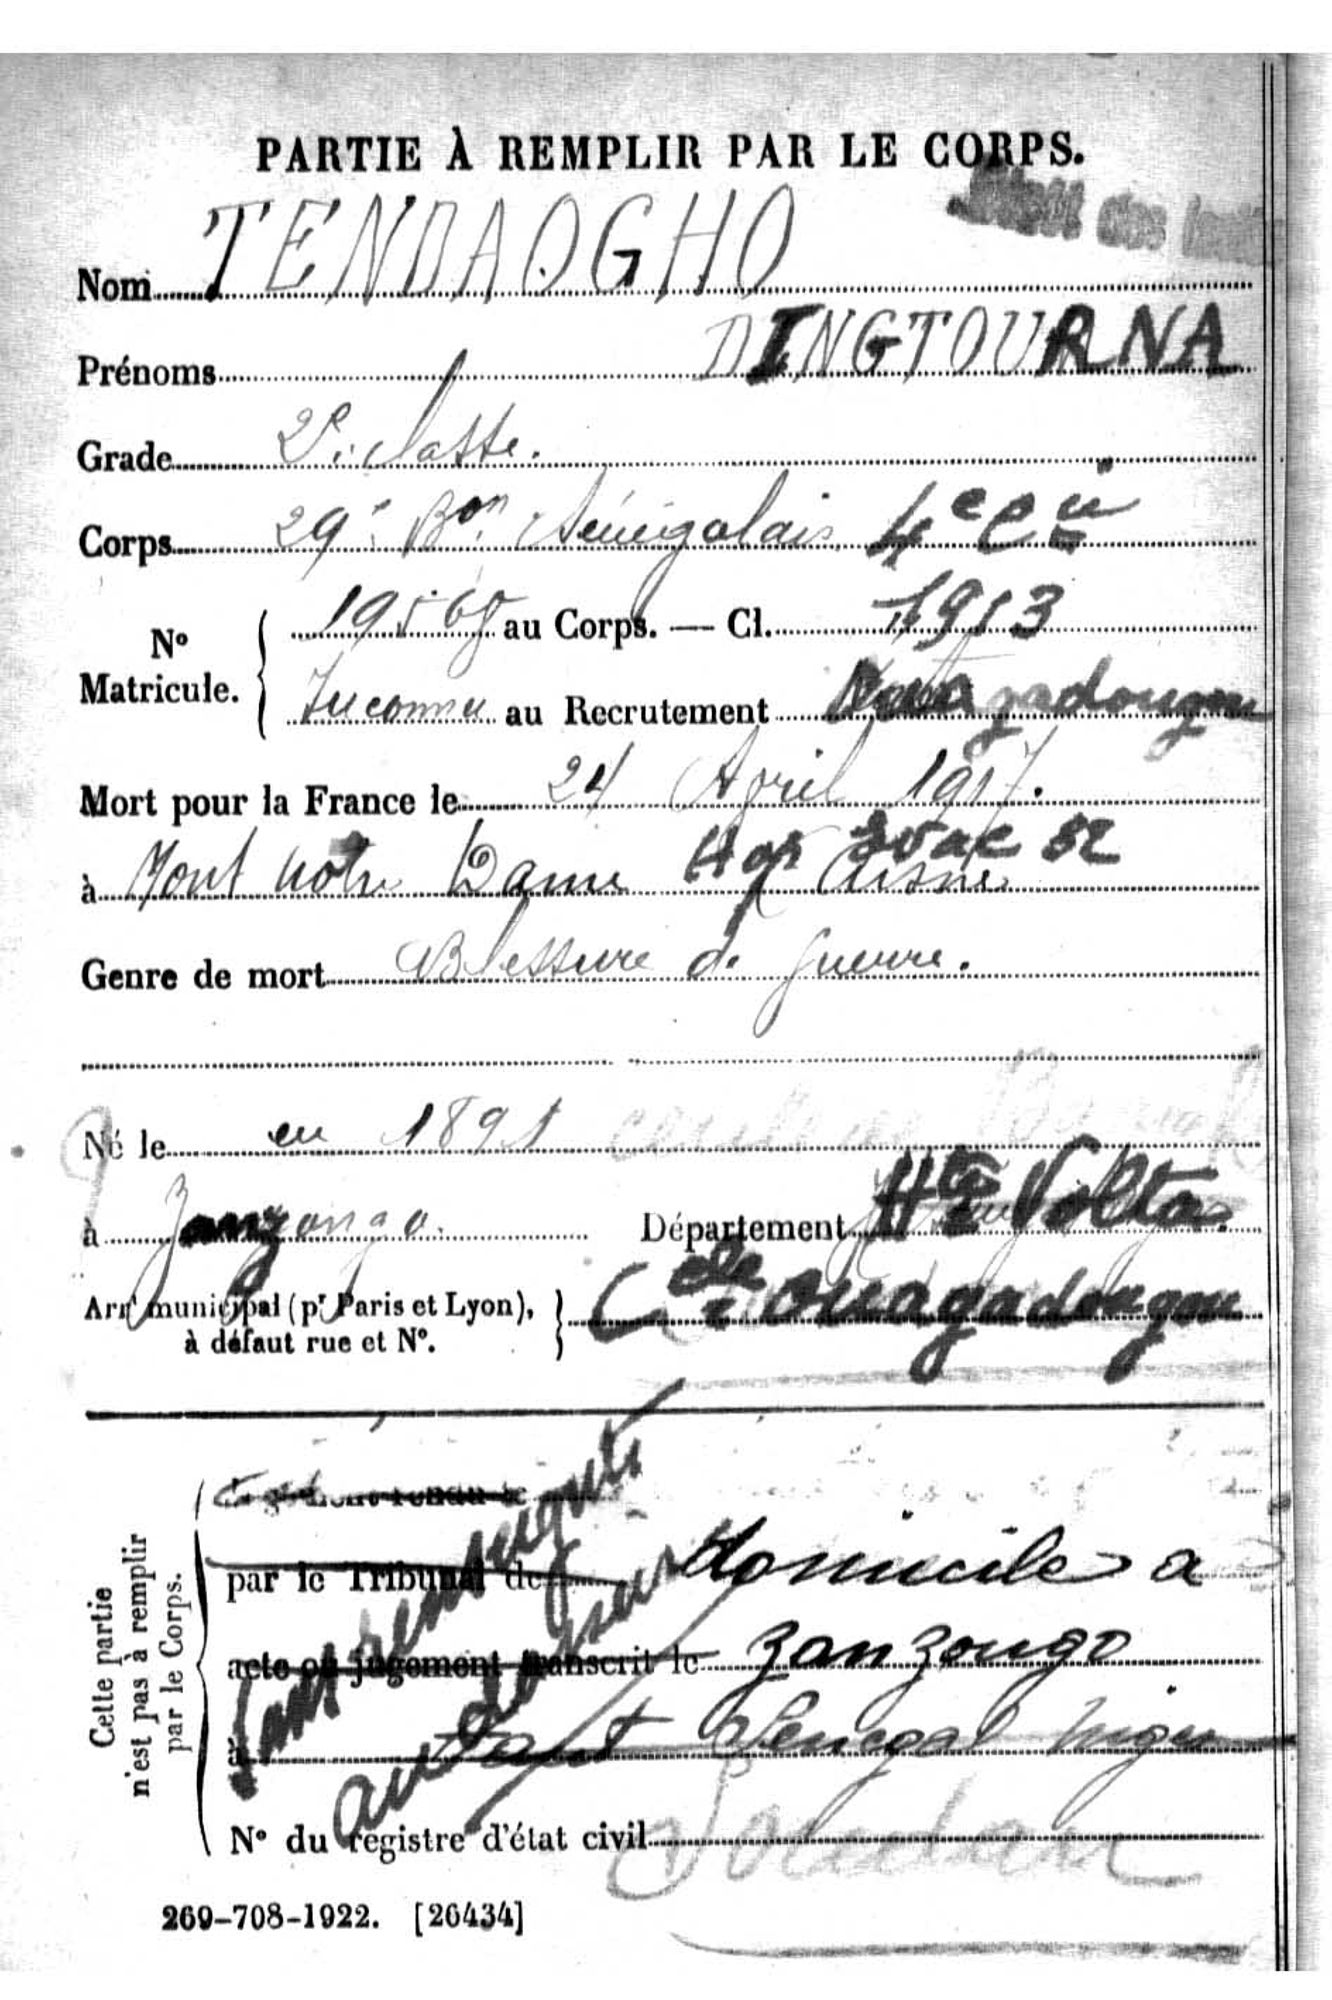 PARTIE À REMPLIR PAR LE CORPS.
des
Nom TENDAOGHO
Prénoms DINGTOURNA
Grade 2e classe.
Corps 29e Bon Sénégalais 4e Cie
No Matricule. au Corps. — Cl. 1913
Inconnu au Recrutement Ouagadougou
Mort pour la France le 24 Avril 1917.
à Mont Notre Dame Aisne
Genre de mort Blessure de guerre.
Né le en 1891
à Département Hte Volta
Arrt municipal (pr Paris et Lyon), à défaut rue et No. } Cle Ouagadougou
Cette partie n'est pas à remplir par le Corps.
par le Tribunal de domicile a
acte ou jugement transcrit le Zanzougo
à Haut Sénégal Niger
No du registre d'état civil Soudan
sans renseignts
au dossier
269-708-1922. [26434]